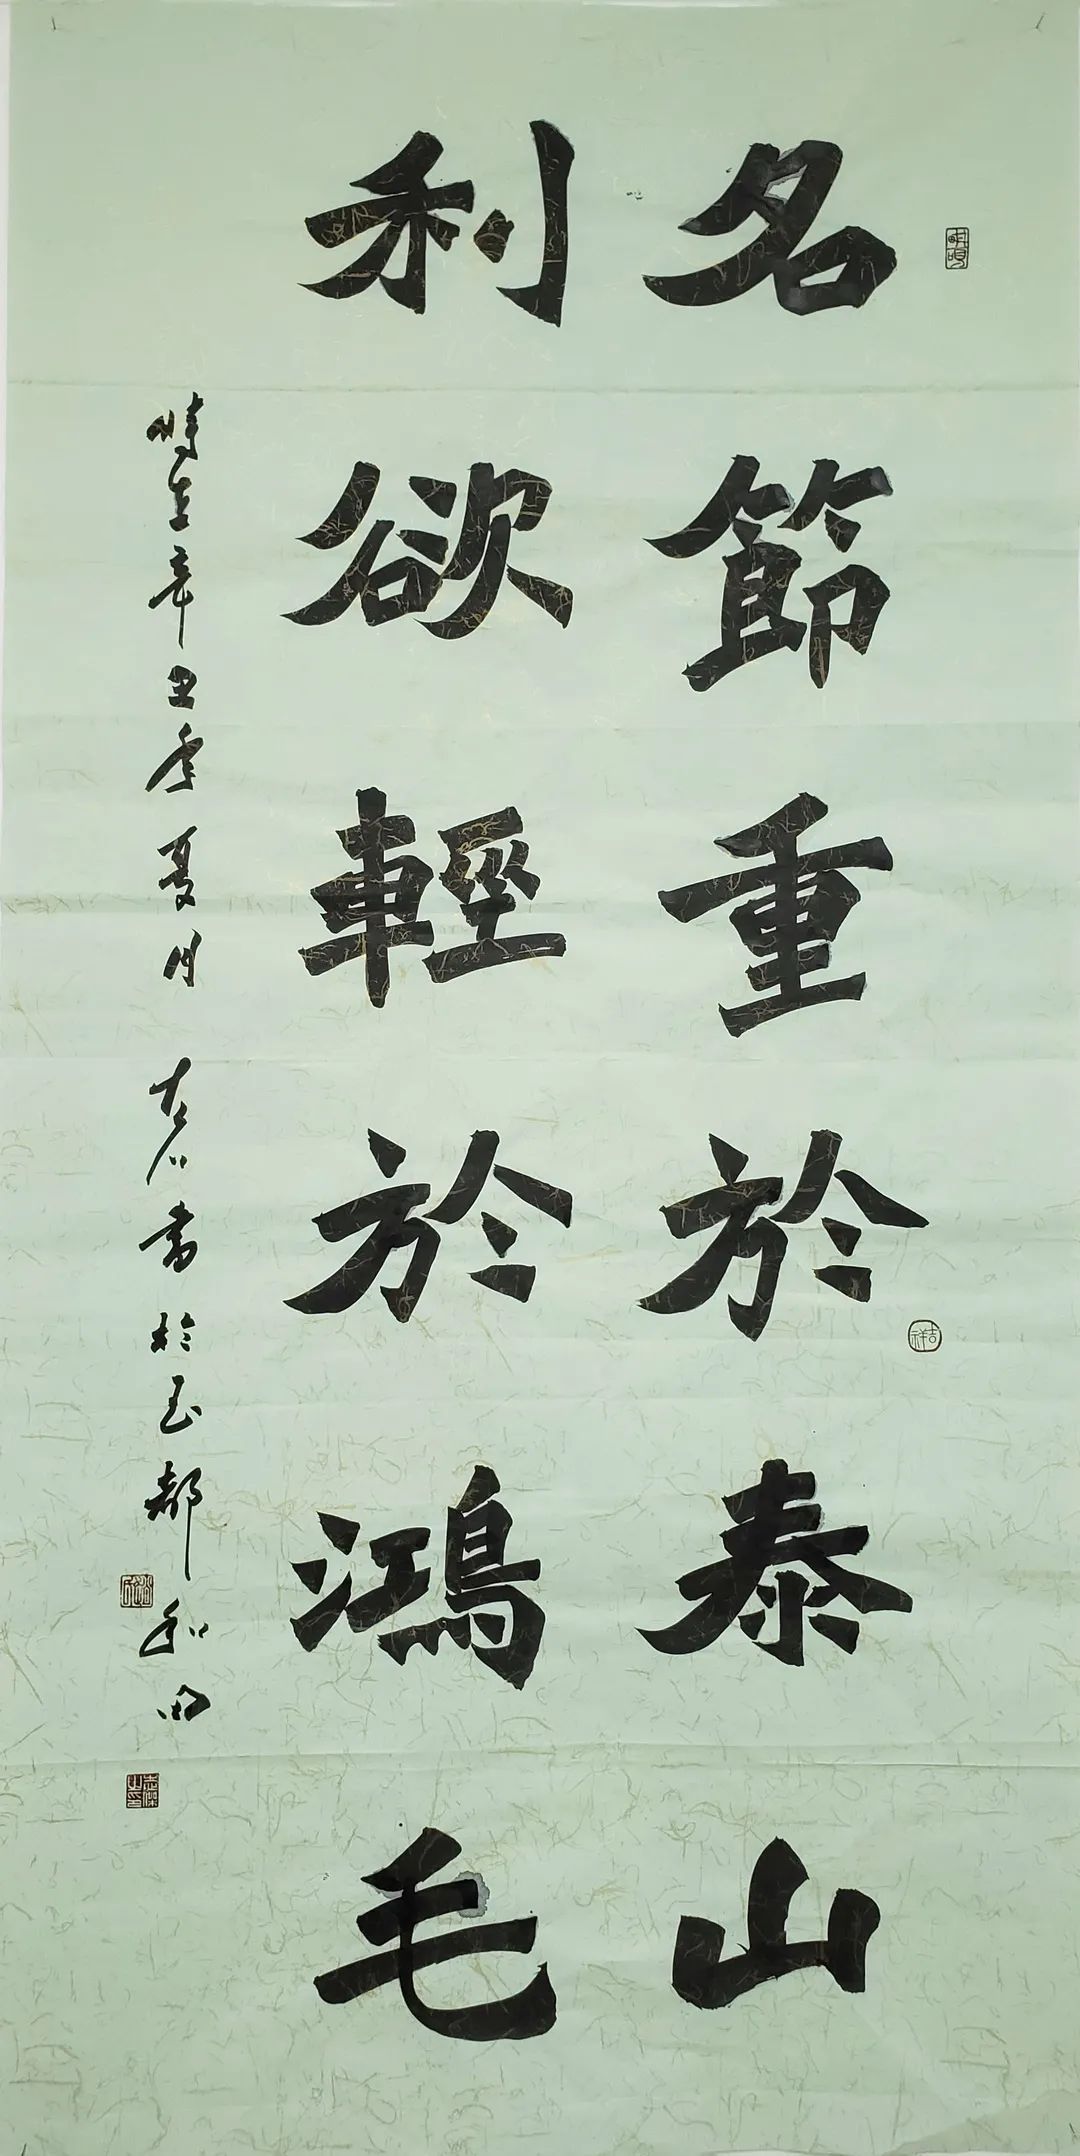 名節重於泰山
利欲輕於鴻毛
時在辛丑年夏月 書於玉都和田
吉祥